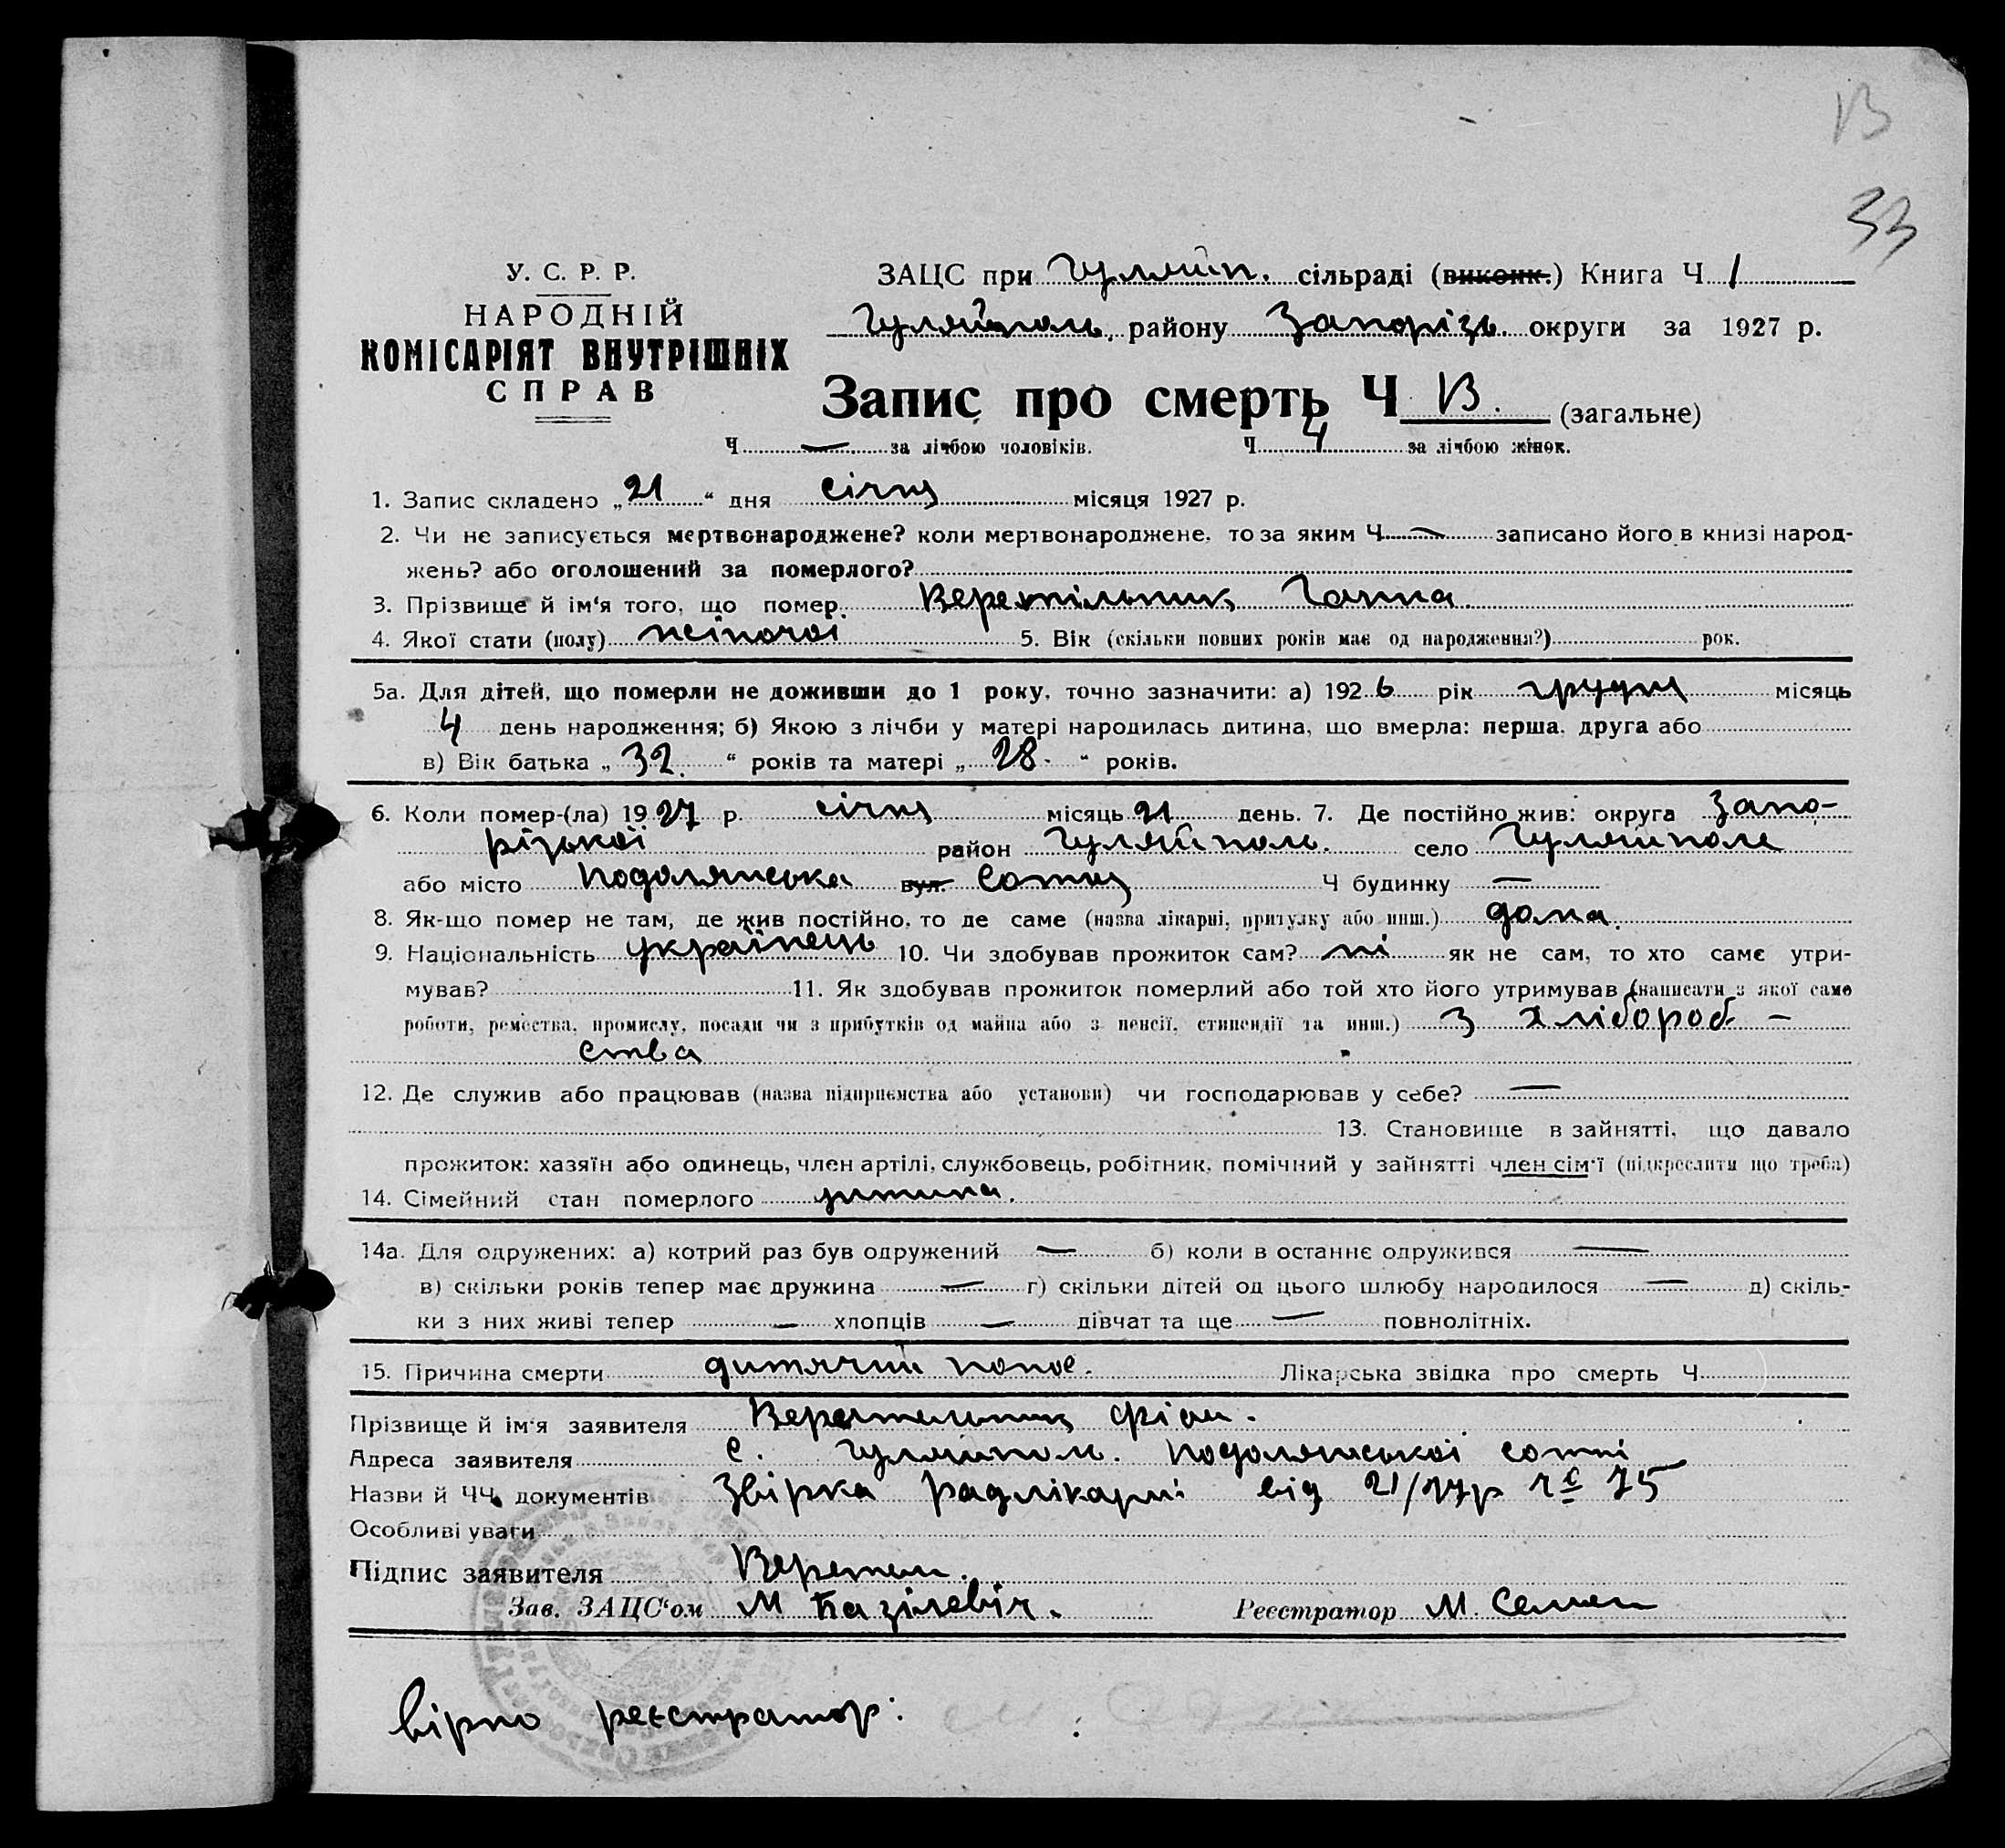 13
33
У. С. Р. Р.
НАРОДНІЙ
КОМІСАРІЯТ ВНУТРІШНІХ
СПРАВ
ЗАЦС при Гуляйп. сільраді (виконк.) Книга Ч 1
Гуляйполь. району Запорізь. округи за 1927 р.
Запис про смерть Ч 13. (загальне)
Ч — за лічбою чоловіків. Ч 4 за лічбою жінок.
1. Запис складено „21“ дня січня місяця 1927 р.
2. Чи не записується мертвонароджене? коли мертвонароджене, то за яким Ч — записано його в книзі народ-
жень? або оголошений за померлого?
3. Прізвище й ім‘я того, що помер. Веретільник Ганна.
4. Якої стати (полу) жіночої 5. Вік (скільки повних років має од народження?) рок.
5а. Для дітей, що померли не доживши до 1 року, точно зазначити: а) 1926 рік грудня місяць
4 день народження; б) Якою з лічби у матері народилась дитина, що вмерла: перша, друга або
в) Вік батька „32.“ років та матері „28.“ років.
6. Коли помер-(ла) 1927 р. січня місяць 21 день. 7. Де постійно жив: округа Запо-
різької район Гуляйполь. село Гуляйполе
або місто Подолянська вул. Сотня Ч будинку —
8. Як-що помер не там, де жив постійно, то де саме (назва лікарні, притулку або инш.) дома.
9. Національність українець 10. Чи здобував прожиток сам? ні як не сам, то хто саме утри-
мував? 11. Як здобував прожиток померлий або той хто його утримував (написати з якої саме
роботи, ремества, промислу, посади чи з прибутків од майна або з пенсії, стипендії та инш.) З хлібороб-
ства
12. Де служив або працював (назва підприємства або установи) чи господарював у себе? —
13. Становище в зайнятті, що давало
прожиток: хазяїн або одинець, член артілі, службовець, робітник, помічний у зайнятті член сім‘ї (підкреслити що треба)
14. Сімейний стан померлого дитина.
14а. Для одружених: а) котрий раз був одружений — б) коли в останнє одружився —
в) скільки років тепер має дружина — г) скільки дітей од цього шлюбу народилося — д) скіль-
ки з них живі тепер — хлопців — дівчат та ще — повнолітніх.
15. Причина смерти дитячий понос. Лікарська звідка про смерть Ч
Прізвище й ім‘я заявителя Веретельник
Адреса заявителя с. Гуляйполь. Подолянської сотні
Назви й ЧЧ. документів Звірка радлікарні від 21/ 75
Особливі уваги
Підпис заявителя Веретел.
Зав. ЗАЦС‘ом М Базілевіч. Реєстратор М.
Вірно реєстратор: